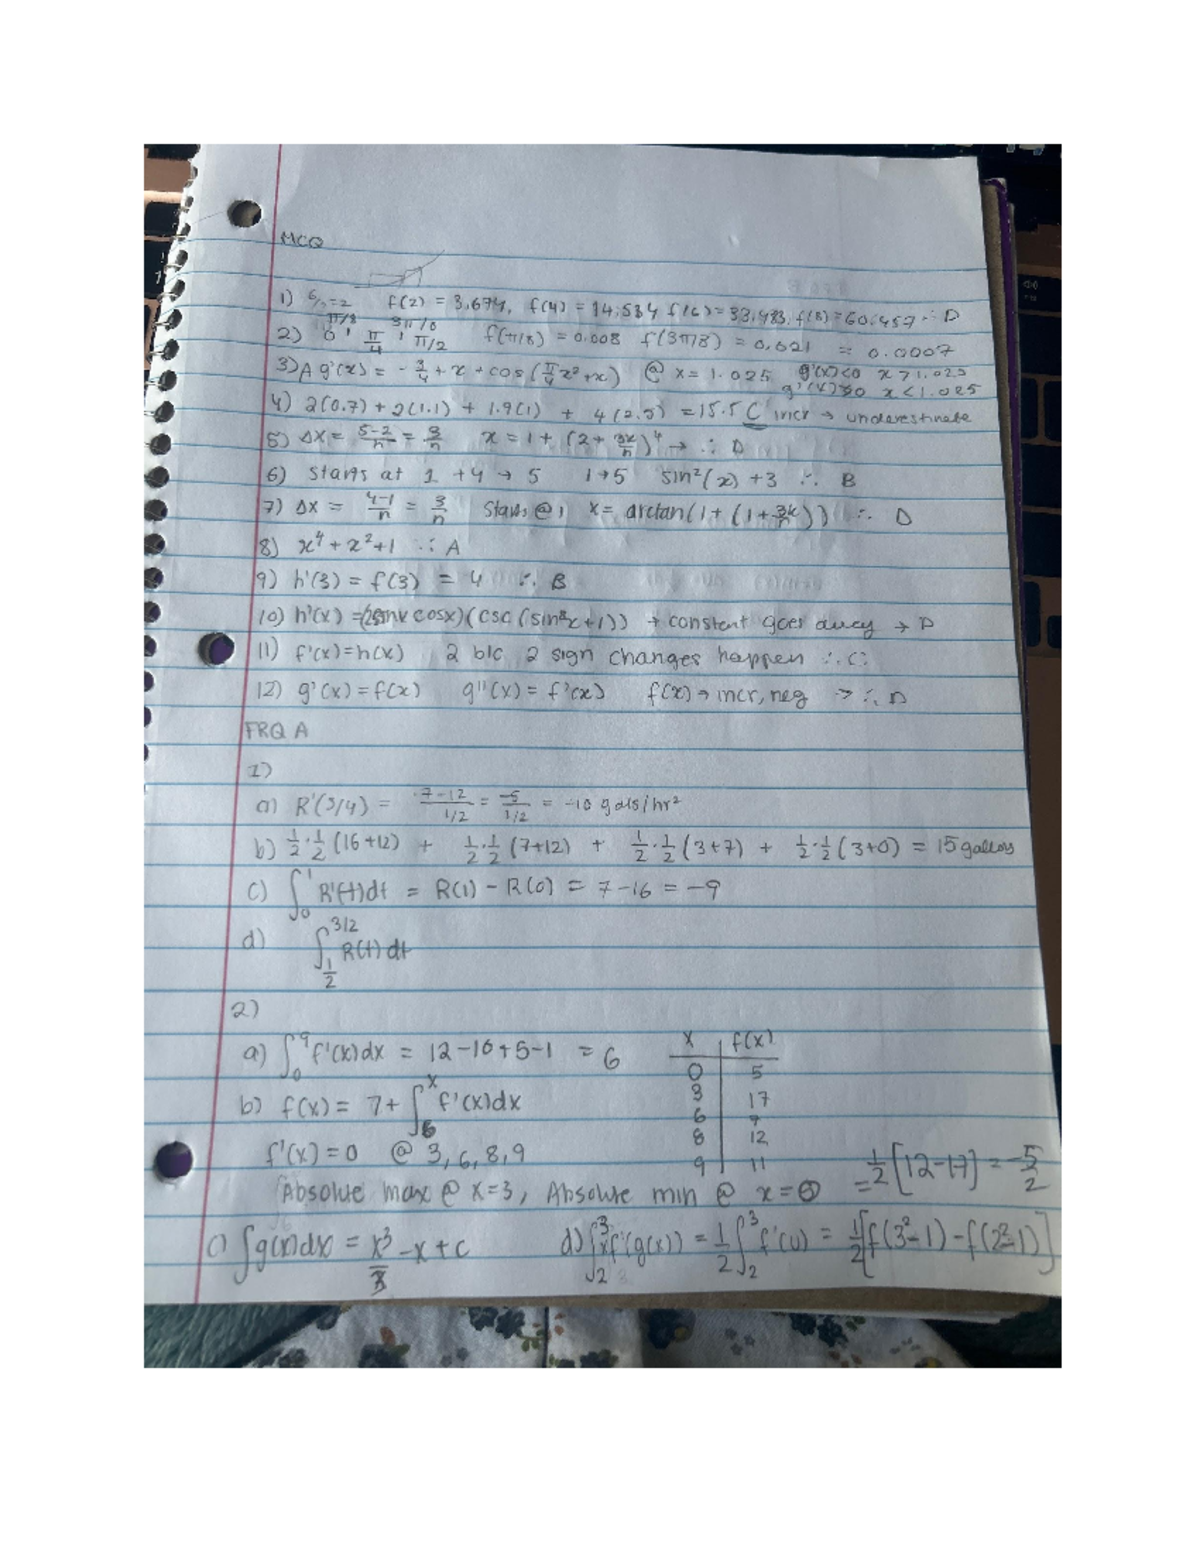 MCQ
1) 6/3=2 f(2) = 3.674, f(4) = 14.534 f(6) = 33.483, f(8) = 60.457 ∴ D
2) 0 π/8 π/4 3π/8 π/2 f(π/8) = 0.008 f(3π/8) = 0.021 = 0.0007
3) A g'(x) = -3/4 + x + cos(π/4 x² + x) @ x = 1.025 g'(x)<0 x>1.025
g'(x)>0 x<1.025
4) 2(0.7) + 2(1.1) + 1.9(1) + 4(2.5) = 15.5 C incr → underestimate
5) ΔX = 5-2/n = 3/n x = 1 + (2 + 3k/n)⁴ → ∴ D
6) starts at 1 +4 → 5 1→5 sin²(x) +3 ∴ B
7) ΔX = 4-1/n = 3/n starts @ 1 x = arctan(1 + (1 + 3k/n)) ∴ D
8) x⁴ + x² + 1 ∴ A
9) h'(3) = f(3) = 4 ∴ B
10) h'(x) = (2sinx cosx)(csc(sin²x + 1)) → constant goes away → D
11) f'(x) = h(x) 2 b/c 2 sign changes happen ∴ C
12) g'(x) = f(x) g''(x) = f'(x) f(x) → incr, neg → ∴ D
FRQ A
1)
a) R'(3/4) = 7-12/1/2 = -5/1/2 = -10 gals/hr²
b) 1/2·1/2(16+12) + 1/2·1/2(7+12) + 1/2·1/2(3+7) + 1/2·1/2(3+0) = 15 gallons
c) ∫₀¹ R'(t)dt = R(1) - R(0) = 7-16 = -9
d) ∫_{1/2}^{3/2} R(t) dt
2)
a) ∫₀⁹ f'(x)dx = 12-10+5-1 = 6
x f(x)
0 5
3 17
6 7
8 12
9 11
b) f(x) = 7+ ∫₆ˣ f'(x)dx
f'(x) = 0 @ 3,6,8,9
Absolute max @ x=3, Absolute min @ x=0
= 1/2[12-17] = -5/2
c) ∫g(x)dx = x³/3 - x + c
d) ∫₂³ xf'(g(x)) = 1/2 ∫₂³ f'(u) = 1/2[f(3²-1) - f(2²-1)]